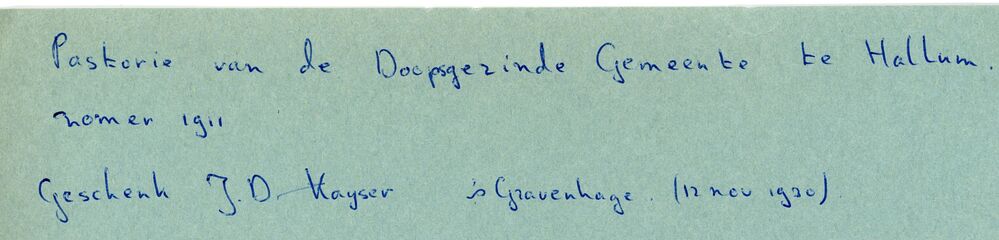 Pastorie van de Doopsgezinde Gemeente te Hallum.
zomer 1911
Geschenk J.D. Kayser 's Gravenhage. (12 nov 1930)